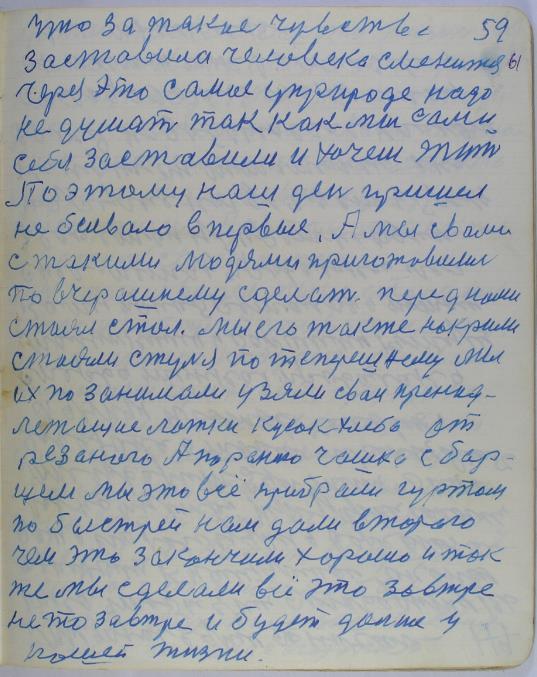 что за такие чувства 59
заставила человека сменится 61
через это самое уприроде надо
не думат так как мы сами
себя заставили и хочем жит
Поэтому наш ден пришел
не бывало впервые, А мы свами
стакими людями приготовилис
по вчерашнему сделат. перед нами
стоял стол. мы его также накрили
стояли стуля по теперешнему мы
их по занимали узяли сваи пренад-
лежащие ложки кусок хлеба от
резаного А чашка с бар-
щем мы это всё прибрали гуртом
по быстрей нам дали второго
чем это закончили хорошо и так
же мы сделали всё это завтре
не то завтре и будет далше у
нашей жизни.